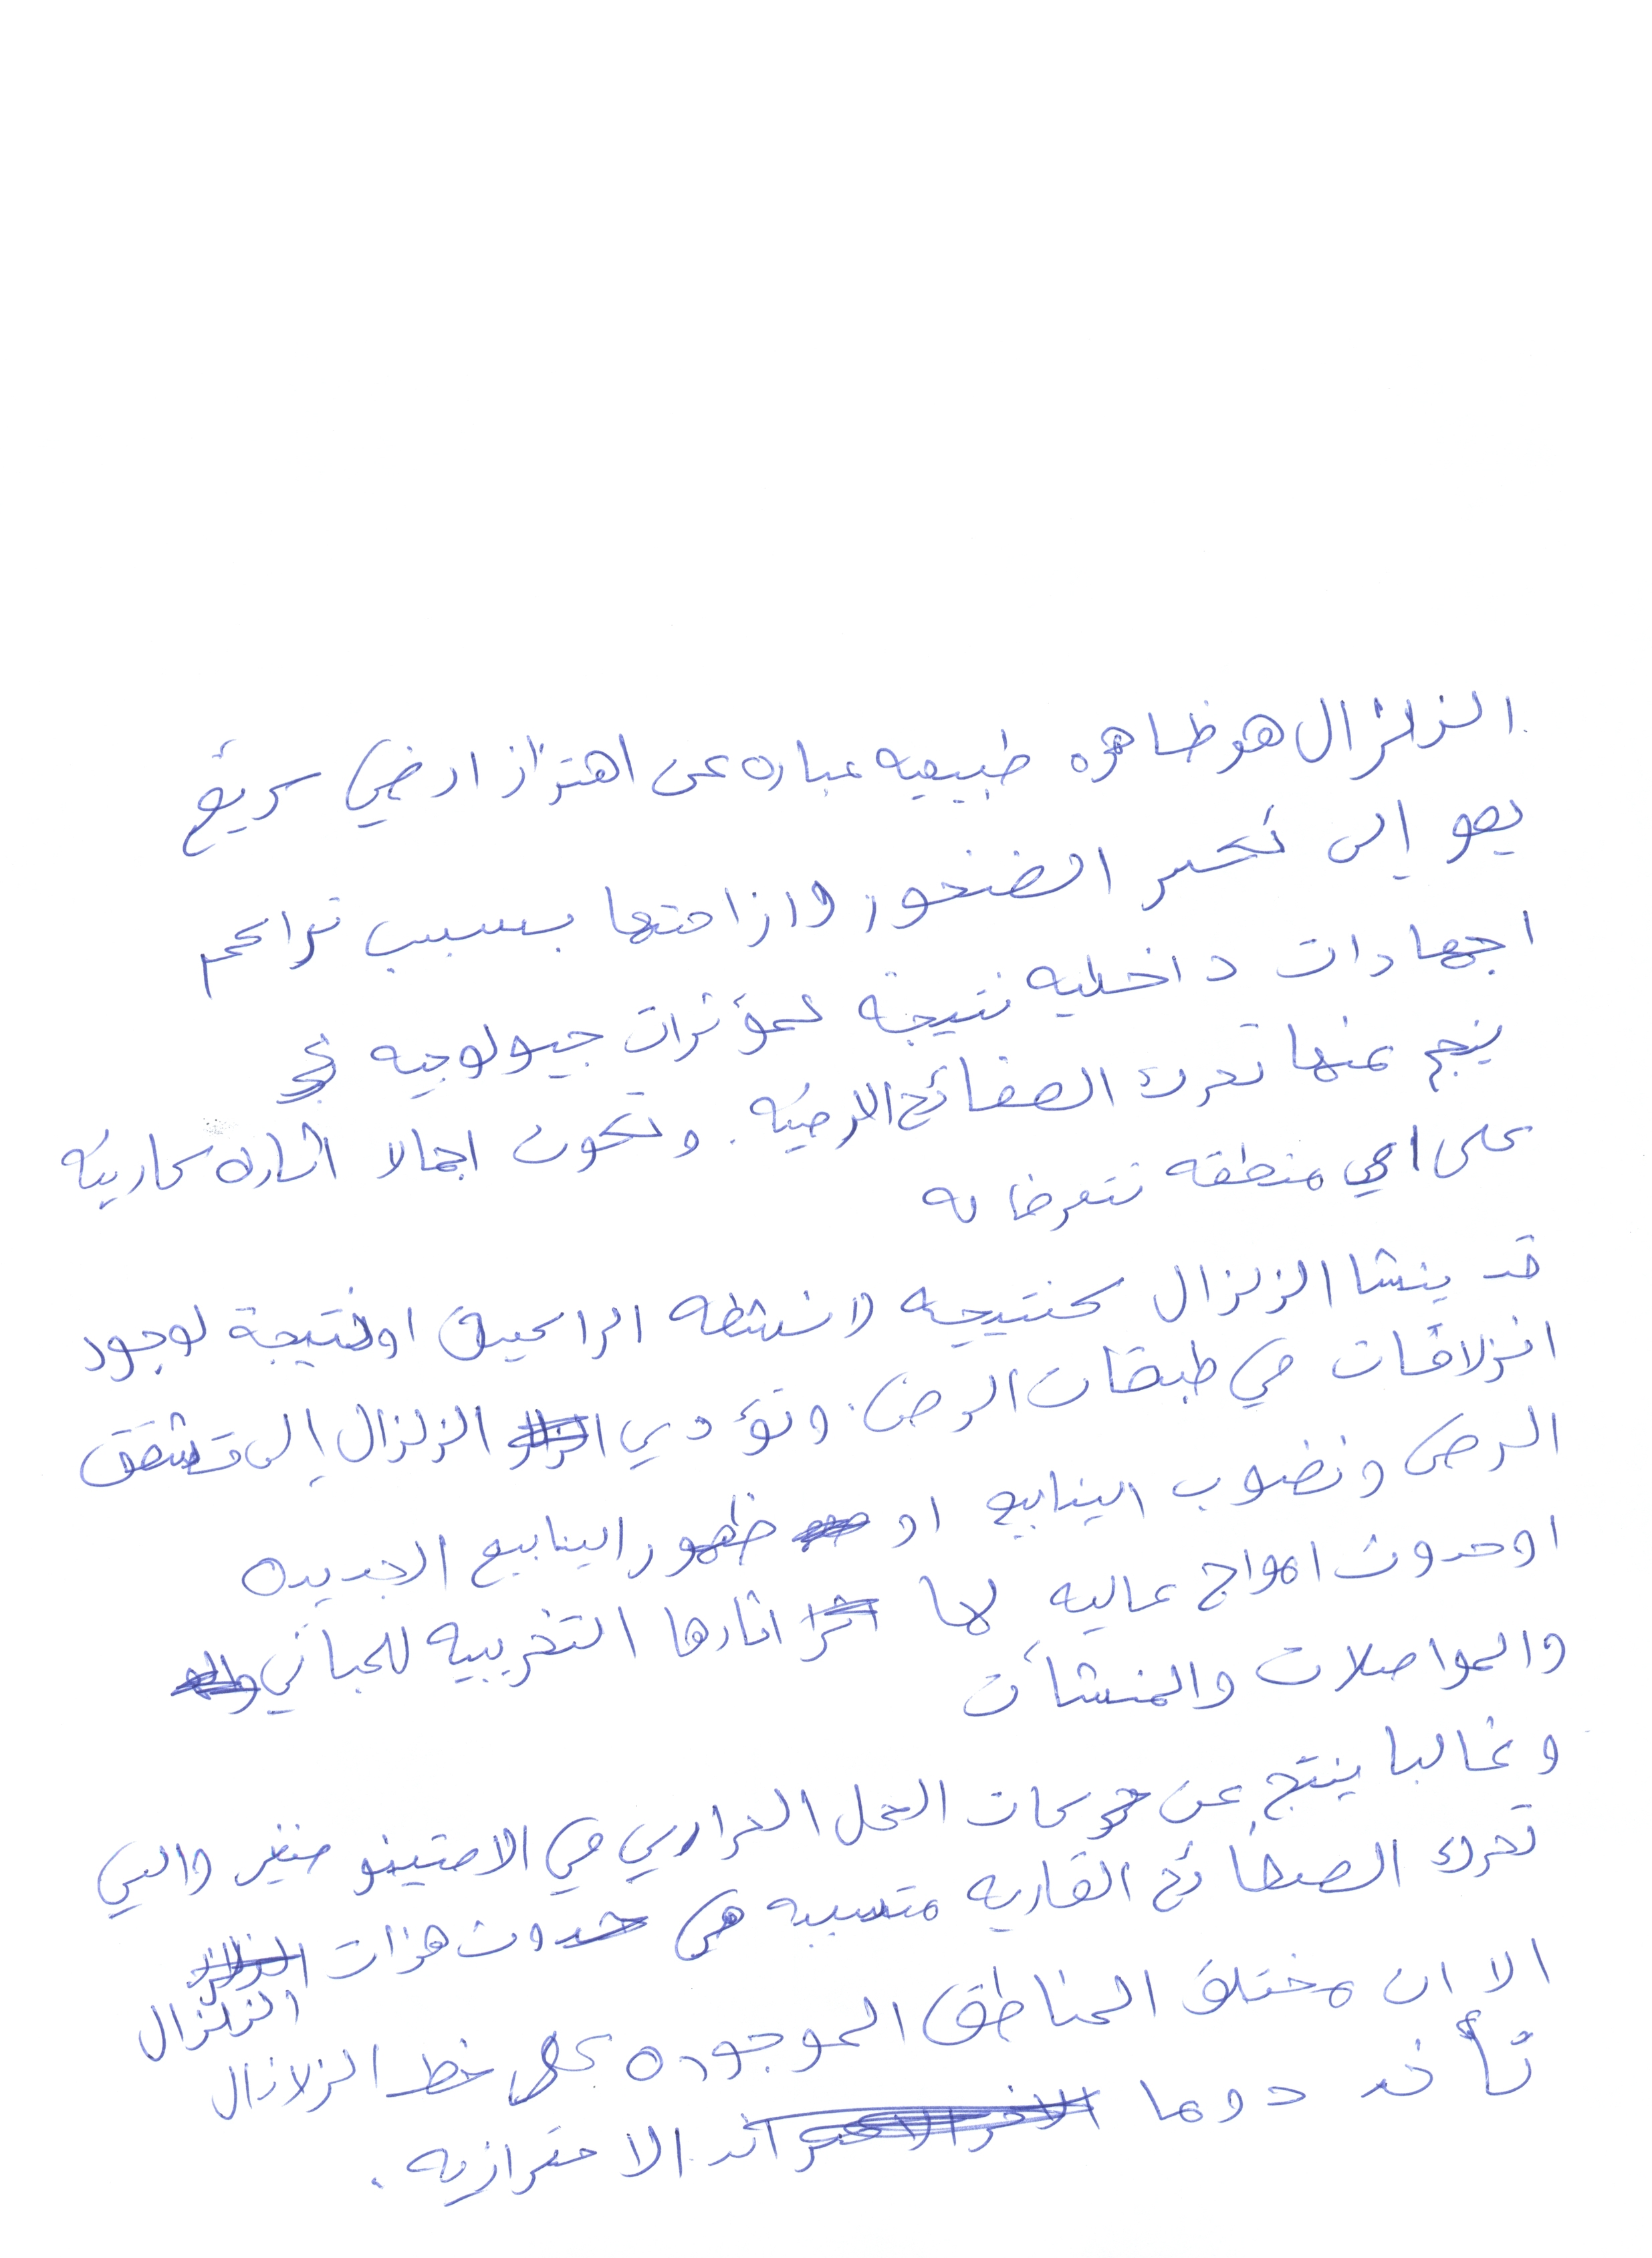 الزلزال هو ظاهره طبيعيه عباره عن اهتزاز ارضي سريع
يعو إلى تكسر الضخور وازاحتها بسبب تراكم
اجهادات داخليه نتيجة لمؤثرات جيولوجيه
ينجم عنها تحرك الصفائح الارضيه. وتكون اجمالا اثاره كارثيه
على اي منطقه تتعرضا له
قد ينشا الزلزال كنتيجه لانشطه البراكين او نتيجة لوجود
انزلاقات في طبقات الارض. وتؤدي الزلزال إلى تشقق
الارض ونضوب الينابيع او ظهور الينابيع الجديده
او حدوث امواج عاليه لها اثارها التخريبيه للمباني
والمواصلات والمنشأت
وغالبا ينتج عن حركات الحمل الحراري في الاستينو سفير والتي
تحرك الصفائح القاريه متسببه في حدوث هزات
الزلزال
الا ان مختلف المناطق الموجوده على خط الزلازال
تأخد دوما الاحترازيه.